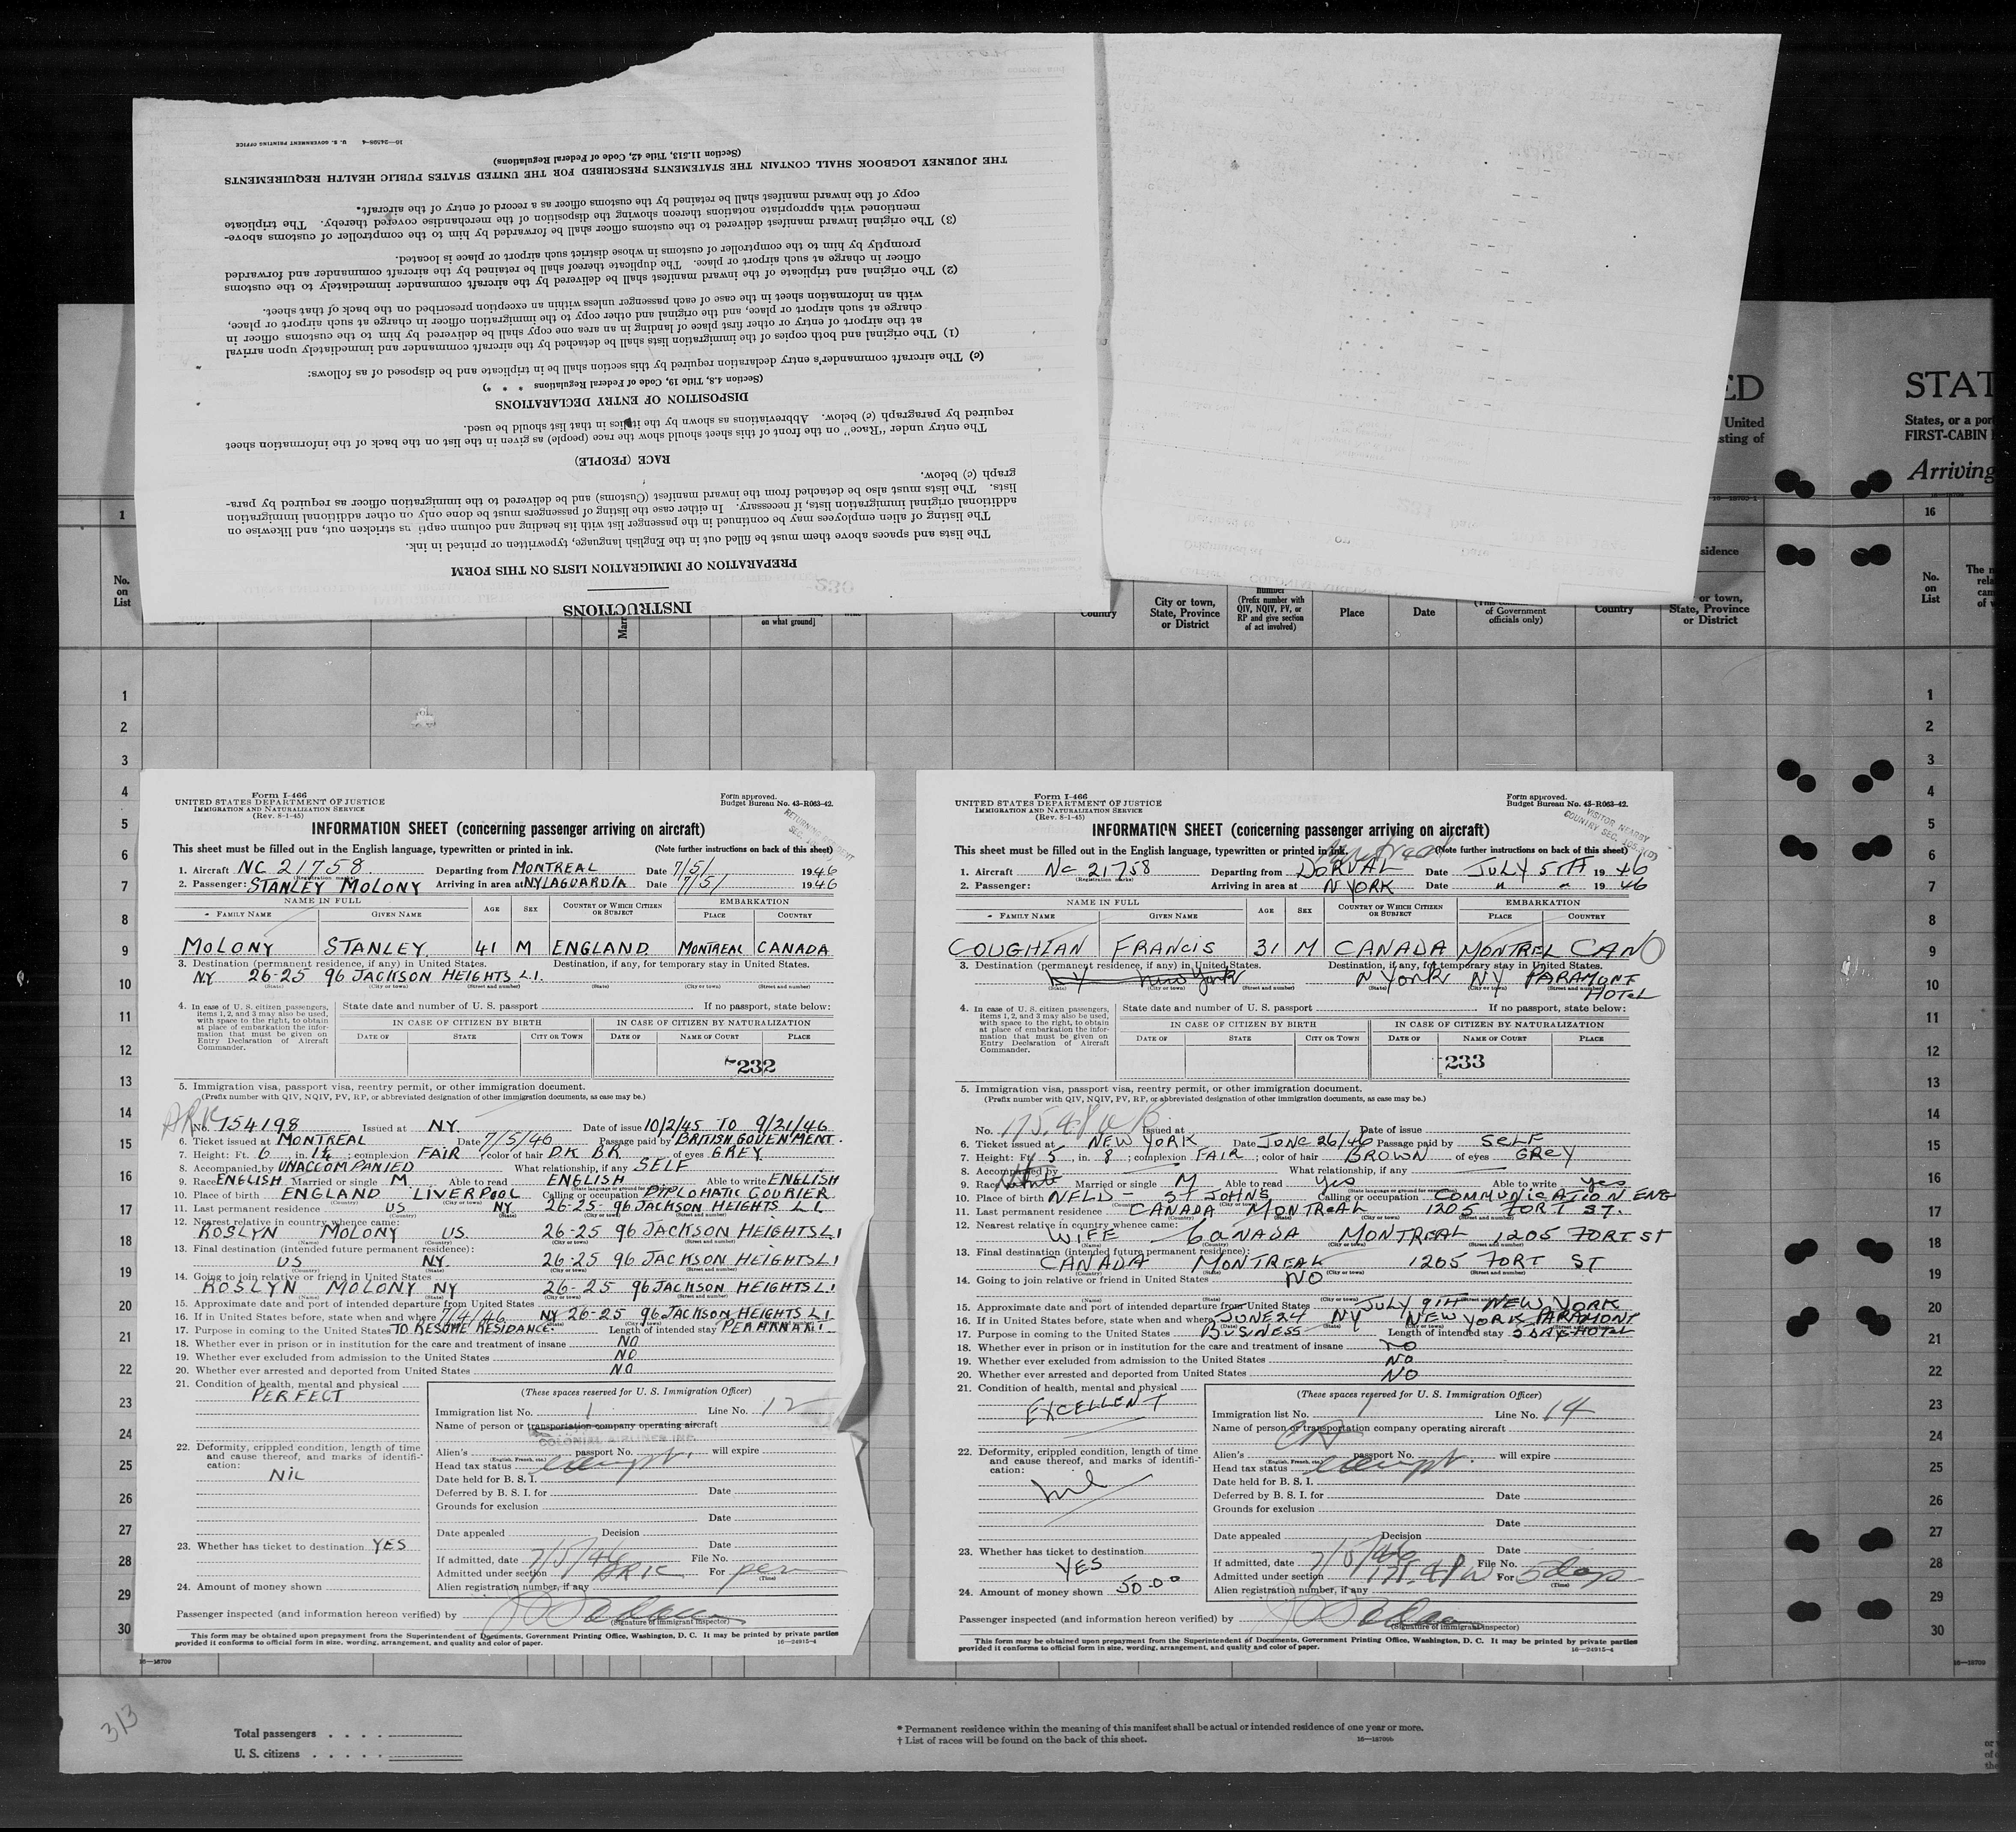 INSTRUCTIONS
PREPARATION OF IMMIGRATION LISTS ON THIS FORM
The lists and spaces above them must be filled out in the English language, typewritten or printed in ink.
The listing of alien employees may be continued in the passenger list with its heading and column capti as stricken out, and likewise on
additional original immigration lists, if necessary. In either case the listing of passengers must be done only on other additional immigration
lists. The lists must also be detached from the inward manifest (Customs) and be delivered to the immigration officer as required by para-
graph (c) below.
RACE (PEOPLE)
The entry under "Race" on the front of this sheet should show the race (people) as given in the list on the back of the information sheet
required by paragraph (c) below. Abbreviations as shown by the italics in that list should be used.
DISPOSITION OF ENTRY DECLARATIONS
(Section 4.8, Title 19, Code of Federal Regulations * * *)
(c) The aircraft commander's entry declaration required by this section shall be in triplicate and be disposed of as follows:
(1) The original and both copies of the immigration lists shall be detached by the aircraft commander and immediately upon arrival
at the airport of entry or other first place of landing in an area one copy shall be delivered by him to the customs officer in
charge at such airport or place, and the original and other copy to the immigration officer in charge at such airport or place,
with an information sheet in the case of each passenger unless within an exception prescribed on the back of that sheet.
(2) The original and triplicate of the inward manifest shall be delivered by the aircraft commander immediately to the customs
officer in charge at such airport or place. The duplicate thereof shall be retained by the aircraft commander and forwarded
promptly by him to the comptroller of customs in whose district such airport or place is located.
(3) The original inward manifest delivered to the customs officer shall be forwarded by him to the comptroller of customs above-
mentioned with appropriate notations thereon showing the disposition of the merchandise covered thereby. The triplicate
copy of the inward manifest shall be retained by the customs officer as a record of entry of the aircraft.
THE JOURNEY LOGBOOK SHALL CONTAIN THE STATEMENTS PRESCRIBED FOR THE UNITED STATES PUBLIC HEALTH REQUIREMENTS
(Section 11.513, Title 42, Code of Federal Regulations)
16—24598-4 U. S. GOVERNMENT PRINTING OFFICE
230
ED
United
sting of
STAT
States, or a por
FIRST-CABIN
Arriving
1
16
No. on List
on what ground]
Country
City or town, State, Province or District
number (Prefix number with QIV, NQIV, PV, or RP and give section of act involved)
Place
Date
of Government officials only)
Country
sidence
or town, State, Province or District
No. on List
1
2
3
4
5
6
7
8
9
10
11
12
13
14
15
16
17
18
19
20
21
22
23
24
25
26
27
28
29
30
Form I-466
UNITED STATES DEPARTMENT OF JUSTICE
IMMIGRATION AND NATURALIZATION SERVICE
(Rev. 8-1-45)
Form approved.
Budget Bureau No. 43-R063-42.
INFORMATION SHEET (concerning passenger arriving on aircraft)
This sheet must be filled out in the English language, typewritten or printed in ink. (Note further instructions on back of this sheet)
1. Aircraft NC 21758 Departing from MONTREAL Date 7/5/ 1946
(Registration marks)
2. Passenger: STANLEY MOLONY Arriving in area at NYLAGUARDIA Date 7/5/ 1946
NAME IN FULL AGE SEX COUNTRY OF WHICH CITIZEN OR SUBJECT EMBARKATION
FAMILY NAME GIVEN NAME PLACE COUNTRY
MOLONY STANLEY. 41 M ENGLAND. MONTREAL CANADA
3. Destination (permanent residence, if any) in United States. Destination, if any, for temporary stay in United States.
N.Y 26-25 96 JACKSON HEIGHTS L.I.
4. In case of U. S. citizen passengers, items 1, 2, and 3 may also be used, with space to the right, to obtain at place of embarkation the information that must be given on Entry Declaration of Aircraft Commander.
State date and number of U. S. passport If no passport, state below:
IN CASE OF CITIZEN BY BIRTH IN CASE OF CITIZEN BY NATURALIZATION
DATE OF STATE CITY OR TOWN DATE OF NAME OF COURT PLACE
232
5. Immigration visa, passport visa, reentry permit, or other immigration document.
(Prefix number with QIV, NQIV, PV, RP, or abbreviated designation of other immigration documents, as case may be.)
No. 754198 Issued at N.Y. Date of issue 10/2/45 TO 9/21/46
6. Ticket issued at MONTREAL Date 7/5/46 Passage paid by BRITISH GOVENMENT.
7. Height: Ft. 6 in. 1½; complexion FAIR; color of hair DK BR of eyes GREY.
8. Accompanied by UNACCOMPANIED What relationship, if any SELF
9. Race ENGLISH Married or single M Able to read ENGLISH Able to write ENGLISH
10. Place of birth ENGLAND LIVERPOOL Calling or occupation DIPLOMATIC COURIER
11. Last permanent residence US NY 26-25 96 JACKSON HEIGHTS L.I
12. Nearest relative in country whence came:
ROSLYN MOLONY US. 26-25 96 JACKSON HEIGHTS L.I
13. Final destination (intended future permanent residence):
US NY. 26-25 96 JACKSON HEIGHTS L.I
14. Going to join relative or friend in United States
ROSLYN MOLONY NY 26-25 96 JACKSON HEIGHTS L.I
15. Approximate date and port of intended departure from United States
16. If in United States before, state when and where 7/4/46 NY 26-25 96 JACKSON HEIGHTS L.I
17. Purpose in coming to the United States TO RESUME RESIDANCE. Length of intended stay
18. Whether ever in prison or in institution for the care and treatment of insane NO
19. Whether ever excluded from admission to the United States NO
20. Whether ever arrested and deported from United States NO
21. Condition of health, mental and physical
PERFECT
22. Deformity, crippled condition, length of time and cause thereof, and marks of identification:
NIL
23. Whether has ticket to destination YES
24. Amount of money shown
(These spaces reserved for U. S. Immigration Officer)
Immigration list No. 1 Line No. 12
Name of person or transportation company operating aircraft
COLONIAL AIRLINES INC.
Alien's passport No. will expire
(English, French, etc.)
Head tax status exempt.
Date held for B. S. I.
Deferred by B. S. I. for Date
Grounds for exclusion
Date
Date appealed Decision
Date
If admitted, date 7/5/46 File No.
Admitted under section For perm
(Time)
Alien registration number, if any
Passenger inspected (and information hereon verified) by
(Signature of immigrant inspector)
This form may be obtained upon prepayment from the Superintendent of Documents, Government Printing Office, Washington, D. C. It may be printed by private parties
provided it conforms to official form in size, wording, arrangement, and quality and color of paper. 16—24915-4
Form I-466
UNITED STATES DEPARTMENT OF JUSTICE
IMMIGRATION AND NATURALIZATION SERVICE
(Rev. 8-1-45)
Form approved.
Budget Bureau No. 43-R063-42.
VISITOR NEARBY
INFORMATION SHEET (concerning passenger arriving on aircraft)
This sheet must be filled out in the English language, typewritten or printed in ink. (Note further instructions on back of this sheet)
Montreal
1. Aircraft NC 21758 Departing from DORVAL Date JULY 5TH 1946
(Registration marks)
2. Passenger: Arriving in area at N YORK Date " " 1946
NAME IN FULL AGE SEX COUNTRY OF WHICH CITIZEN OR SUBJECT EMBARKATION
FAMILY NAME GIVEN NAME PLACE COUNTRY
COUGHLAN FRANCIS 31 M CANADA MONTREL CAN
3. Destination (permanent residence, if any) in United States. Destination, if any, for temporary stay in United States.
NY New York N YORK NY PARAMONT HOTEL
4. In case of U. S. citizen passengers, items 1, 2, and 3 may also be used, with space to the right, to obtain at place of embarkation the information that must be given on Entry Declaration of Aircraft Commander.
State date and number of U. S. passport If no passport, state below:
IN CASE OF CITIZEN BY BIRTH IN CASE OF CITIZEN BY NATURALIZATION
DATE OF STATE CITY OR TOWN DATE OF NAME OF COURT PLACE
233
5. Immigration visa, passport visa, reentry permit, or other immigration document.
(Prefix number with QIV, NQIV, PV, RP, or abbreviated designation of other immigration documents, as case may be.)
No. Issued at Date of issue
6. Ticket issued at NEW YORK Date JUNE 26/46 Passage paid by SELF
7. Height: Ft. 5, in. 8; complexion FAIR; color of hair BROWN of eyes GREY
8. Accompanied by What relationship, if any
9. Race White Married or single M Able to read yes Able to write yes
10. Place of birth NFLD - ST JOHNS Calling or occupation COMMUNICATION ENG
11. Last permanent residence CANADA MONTREAL 1205 FORT ST.
12. Nearest relative in country whence came:
WIFE CANADA MONTREAL 1205 FORT ST
13. Final destination (intended future permanent residence):
CANADA MONTREAL 1205 FORT ST
14. Going to join relative or friend in United States NO
15. Approximate date and port of intended departure from United States JULY 9TH NEW YORK
16. If in United States before, state when and where JUNE 24 NY NEW YORK PARAMONT HOTEL
17. Purpose in coming to the United States BUSINESS Length of intended stay 5 DAYS
18. Whether ever in prison or in institution for the care and treatment of insane NO
19. Whether ever excluded from admission to the United States NO
20. Whether ever arrested and deported from United States NO
21. Condition of health, mental and physical
EXCELLENT
22. Deformity, crippled condition, length of time and cause thereof, and marks of identification:
nil
23. Whether has ticket to destination
YES
24. Amount of money shown 50.00
(These spaces reserved for U. S. Immigration Officer)
Immigration list No. 1 Line No. 14
Name of person or transportation company operating aircraft
Alien's passport No. will expire
(English, French, etc.)
Head tax status exempt.
Date held for B. S. I.
Deferred by B. S. I. for Date
Grounds for exclusion
Date
Date appealed Decision
Date
If admitted, date 7/5/46 File No.
Admitted under section For 5 days
(Time)
Alien registration number, if any
Passenger inspected (and information hereon verified) by
(Signature of immigrant inspector)
This form may be obtained upon prepayment from the Superintendent of Documents, Government Printing Office, Washington, D. C. It may be printed by private parties
provided it conforms to official form in size, wording, arrangement, and quality and color of paper. 16—24915-4
1
2
3
4
5
6
7
8
9
10
11
12
13
14
15
16
17
18
19
20
21
22
23
24
25
26
27
28
29
30
16—18709
313
Total passengers
U. S. citizens
* Permanent residence within the meaning of this manifest shall be actual or intended residence of one year or more.
† List of races will be found on the back of this sheet.